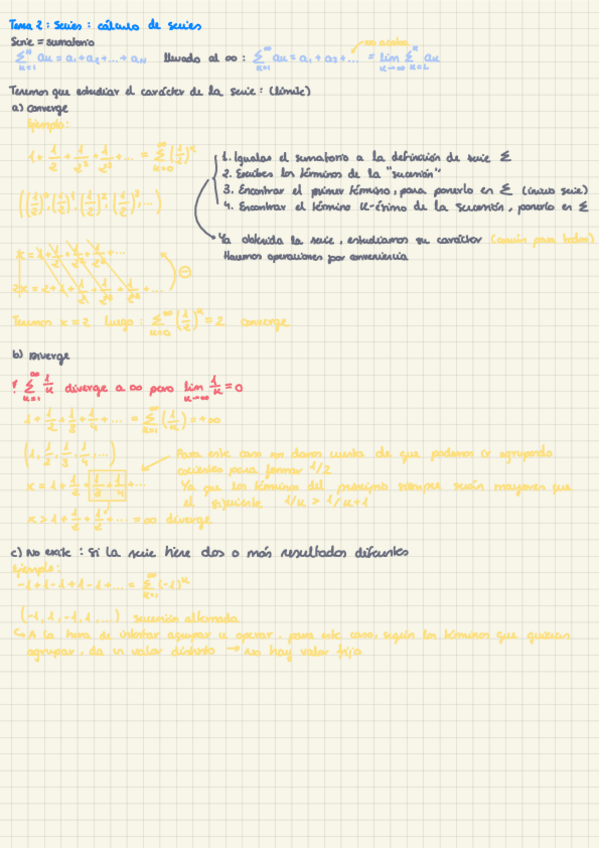 Tema 2: Series: cálculo de series
Serie = sumatorio
∑_{k=1}^{N} a_k = a_1 + a_2 + ... + a_N llevado al ∞: ∑_{k=1}^{∞} a_k = a_1 + a_2 + ... = lim_{k→∞} ∑_{k=1}^{k} a_k
Tenemos que estudiar el carácter de la serie: (límite)
a) Converge
Ejemplo:
1 + 1/2 + 1/2² + 1/2³ + ... = ∑_{k=0}^{∞} (1/2)^k
1. Igualas el sumatorio a la definición de serie ∑
2. Escribes los términos de la "sucesión"
3. Encontrar el primer término, para ponerlo en ∑ (inicio serie)
4. Encontrar el término k-ésimo de la sucesión, ponerlo en ∑
((1/2)⁰, (1/2)¹, (1/2)², (1/2)³, ...)
Ya obtenida la serie, estudiamos su carácter (común para todos)
Hacemos operaciones por conveniencia
x = 1 + 1/2 + 1/2² + ...
2x = 2 + 1 + 1/2 + 1/2² + 1/2³ + ...
Tenemos x = 2 luego: ∑_{k=0}^{∞} (1/2)^k = 2 converge
b) Diverge
! ∑_{k=1}^{∞} 1/k diverge a ∞ pero lim_{k→∞} 1/k = 0
1 + 1/2 + 1/3 + 1/4 + ... = ∑_{k=1}^{∞} (1/k) = +∞
(1, 1/2, 1/3, 1/4, ...)
Para este caso nos damos cuenta de que podemos ir agrupando
cocientes para formar 1/2
x = 1 + 1/2 + 1/3 + 1/4 + ...
Ya que los términos del principio siempre serán mayores que
el siguiente 1/k > 1/k+1
x > 1 + 1/2 + 1/2 + ... = ∞ diverge
c) No existe: Si la serie tiene dos o más resultados diferentes
Ejemplo:
-1+1-1+1-1+... = ∑_{k=1}^{∞} (-1)^k
(-1, 1, -1, 1, ...) sucesión alternada
↳ A la hora de intentar agrupar u operar, para este caso, según los términos que quieras
agrupar, da un valor distinto → No hay valor fijo